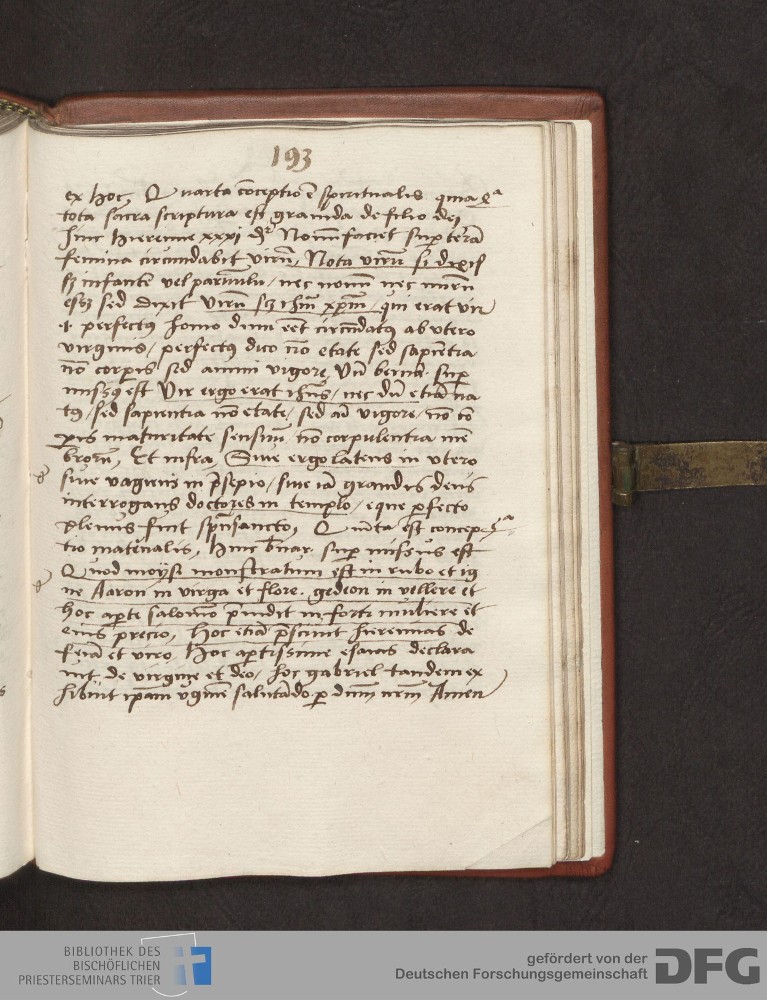 193
ex hoc, Quarta cōceptio ē spiritualis quia
tota sacra scriptura est grauida de filio dei
hinc hieremie xxxi dr Nouū faciet sup terrā
femina circundabit virū, Nota virū si dixis
sz infantē vel paruulū, nec nouū nec mirū
essz sed dixit virū scz ihm xpm, qui erat vir
.i. perfectꝯ homo dum eēt circūdatꝯ ab vtero
virginis, perfectꝯ dico nō etate sed sapiētia
nō corpis sed animi vigore, Vn̄ bernar. sup
missus est Vir ergo erat ihūs, nec dū etiā na
tꝯ, sed sapientia nō etate, sed aī vigore, nō co
rꝑis maturitate sensuū nō corpulentia mē
brorū, Et infra, Siue ergo latens in vtero
siue vagiens in p̄sepio, siue iā grandis deus
interrogans doctores in templo, eque ꝑfecto
plenus fuit spūsancto, Quīta est concep
tio māt̄nalis, hinc b̄nar. sup missus est
Quod moysi monstratum est in rubo et ig
ne Aaron in virga et flore. gedeon in vellere et
hoc aꝑte salomō p̄uidit in forti muliere et
eius precio, hoc etiā p̄sciuit hieremias de
feīa et viro hoc aꝑtissime esaias declara
uit de virgine et deo, hoc gabriel tandem ex
hibuit ipam v̄ginē salutādo ꝑ dnm nrm Amen
BIBLIOTHEK DES
BISCHÖFLICHEN
PRIESTERSEMINARS TRIER
gefördert von der
Deutschen Forschungsgemeinschaft
DFG